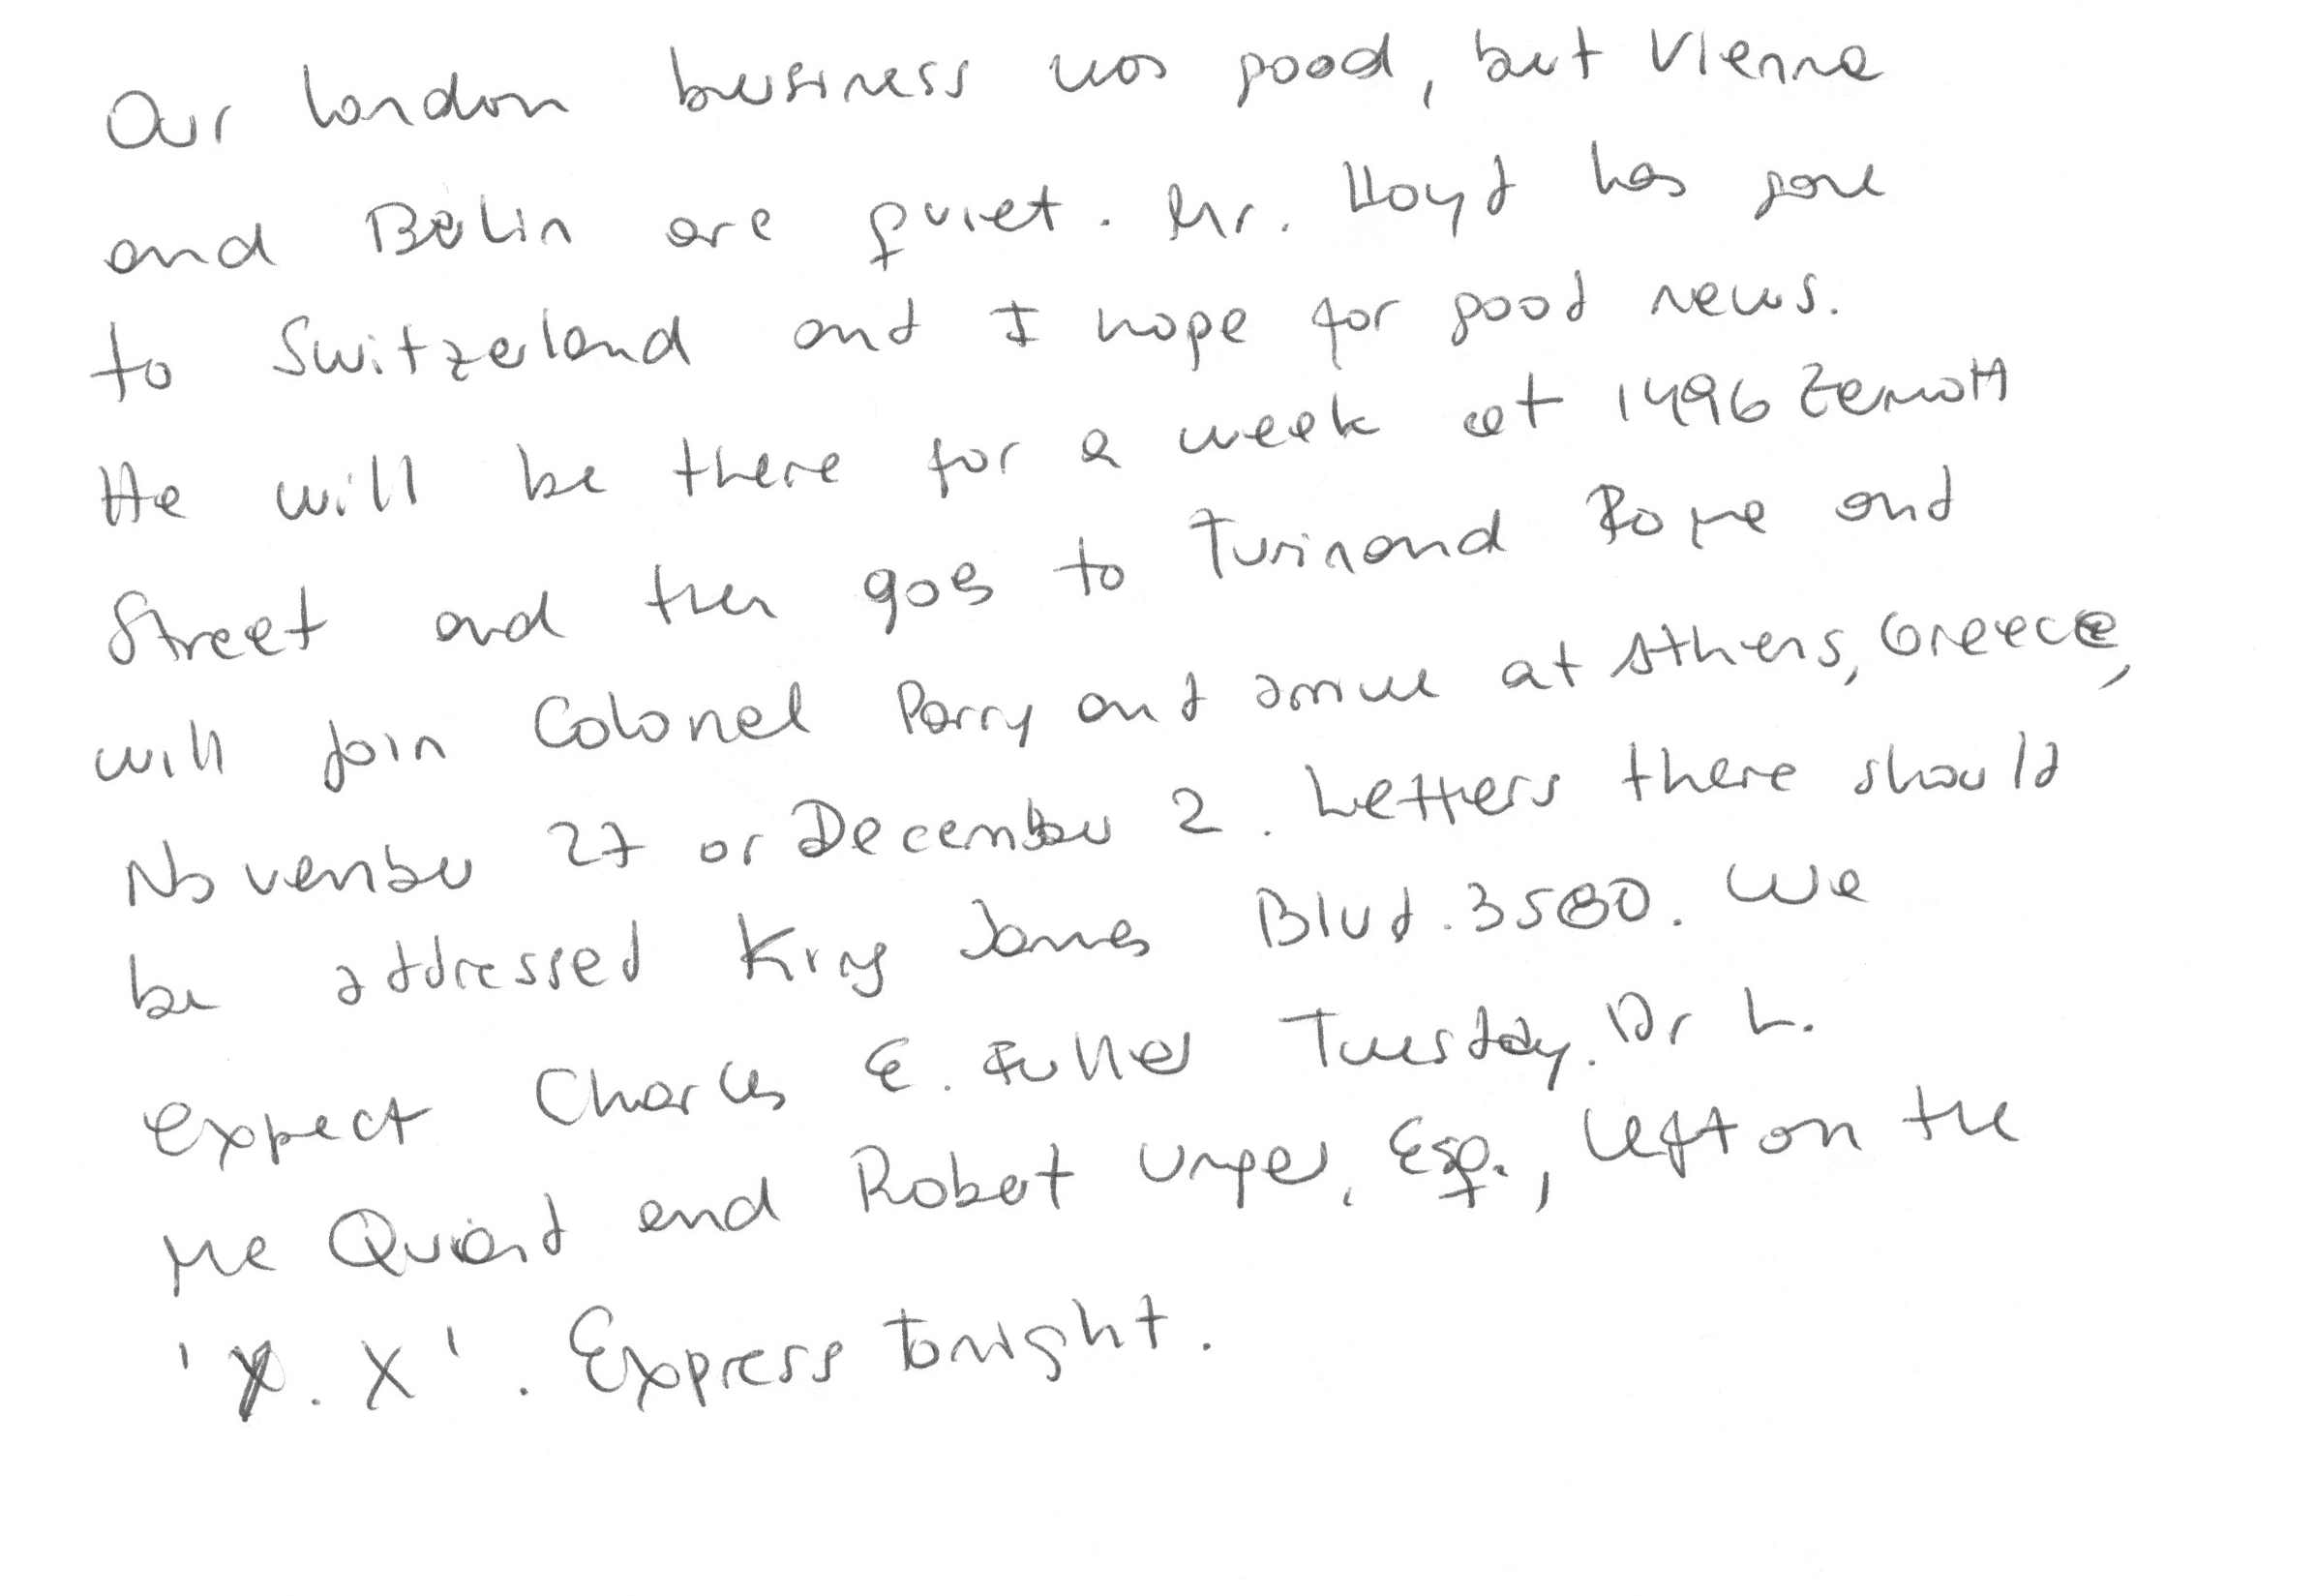 Our London business was good, but Vienna
and Berlin are quiet. Mr. Lloyd has gone
to Switzerland and I hope for good news.
He will be there for a week at 1496 Zermott
Street and then goes to Turin and Rome and
will join Colonel Parry and arrive at Athens, Greece,
November 27 or December 2. Letters there should
be addressed King James Blvd. 3580. We
expect Charles E. Fuller Tuesday. Dr L.
Mc Quaid and Robert Unger, Esq., left on the
'X. X'. Express tonight.